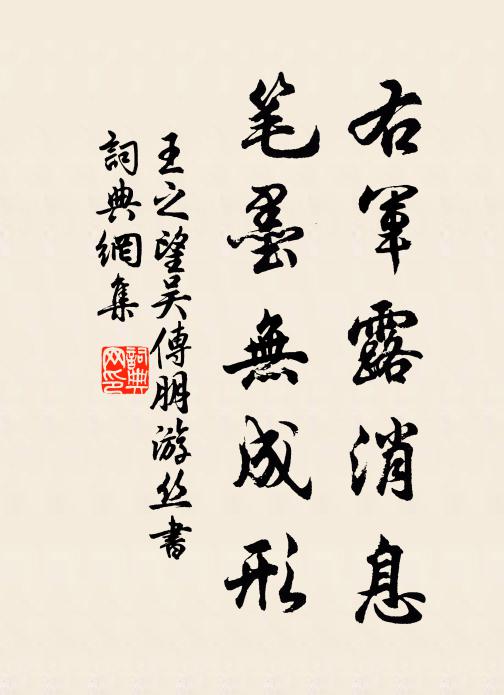 右軍露消息
笔墨無成形
王之望吴傅朋游丝書
詞典網集
詞典网印